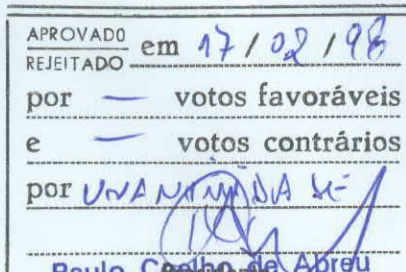 APROVADO
REJEITADO em 17 / 02 / 98
por — votos favoráveis
e — votos contrários
por UNANIMIDADE
Paulo Coelho de Abreu